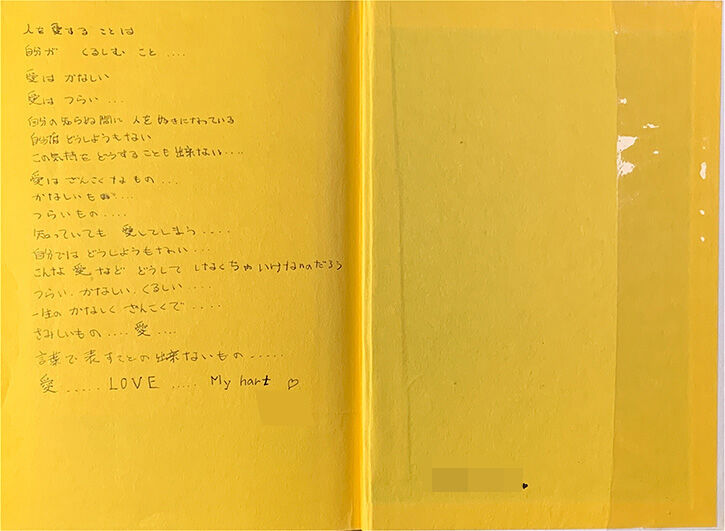 人を愛する ことは
自分が くるしむ こと ....
愛は かなしい
愛は つらい ...
自分の知らぬ間に 人を好きになっている
自分は どうしようもない
この気持を どうすることも出来ない ....
愛は ざんこくなもの ...
かなしいもの ...
つらいもの ....
知っていても 愛してしまう ....
自分では どうしようもされない ...
こんな 愛など どうして しなくちゃ いけないのだろう
つらい. かなしい. くるしい ....
一生の かなしく ざんこくで .....
さみしいもの .... 愛 ....
言葉で 表すことの 出来ないもの .....
愛 ..... LOVE ..... My hart ♡